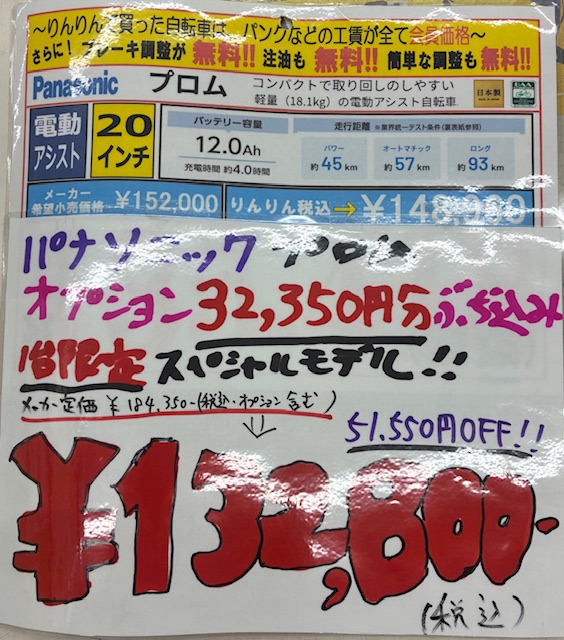 ～りんりんで買った自転車は、パンクなどの工賃が全て会員価格～
さらに！ ブレーキ調整が 無料!! 注油も 無料!! 簡単な調整も無料!!
Panasonic プロム コンパクトで取り回しのしやすい
軽量（18.1kg）の電動アシスト自転車
日本製
電動
アシスト
20
インチ
バッテリー容量
12.0Ah
充電時間 約4.0時間
走行距離 ※業界統一テスト条件（裏表紙参照）
パワー
約45km
オートマチック
約57km
ロング
約93km
メーカー
希望小売価格 ¥152,000
りんりん税込→¥148,900
パナソニック プロム
オプション32,350円分ぶち込み
1台限定 スペシャルモデル!!
メーカー定価 ¥184,350-(税込・オプション含む)
51,550円OFF!!
¥132,800-
(税込)